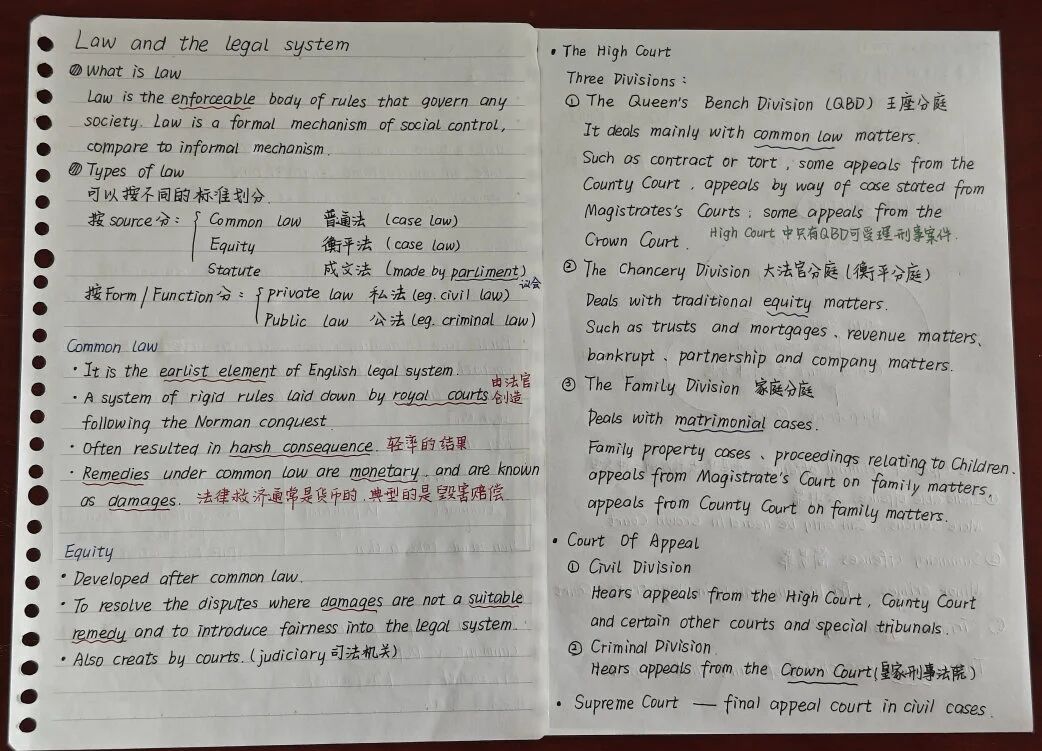 Law and the legal system
What is law
Law is the enforceable body of rules that govern any
society. Law is a formal mechanism of social control,
compare to informal mechanism.
Types of law
可以按不同的标准划分.
按source分: Common law 普通法 (case law)
Equity 衡平法 (case law)
Statute 成文法 (made by parliment) 议会
按Form / Function分: private law 私法 (eg. civil law)
Public law 公法 (eg. criminal law)
Common law
· It is the earlist element of English legal system.
· A system of rigid rules laid down by royal courts 由法官创造
following the Norman conquest.
· Often resulted in harsh consequence. 轻率的结果
· Remedies under common law are monetary, and are known
as damages. 法律救济通常是货币的,典型的是毁害赔偿
Equity
· Developed after common law.
· To resolve the disputes where damages are not a suitable
remedy and to introduce fairness into the legal system.
· Also creats by courts. (judiciary 司法机关)
· The High Court
Three Divisions:
① The Queen's Bench Division (QBD) 王座分庭
It deals mainly with common law matters.
Such as contract or tort, some appeals from the
County Court, appeals by way of case stated from
Magistrates's Courts; some appeals from the
Crown Court. High Court 中只有QBD可受理刑事案件.
② The Chancery Division 大法官分庭 (衡平分庭)
Deals with traditional equity matters.
Such as trusts and mortgages、revenue matters、
bankrupt、partnership and company matters.
③ The Family Division 家庭分庭
Deals with matrimonial cases.
Family property cases、proceedings relating to Children.
appeals from Magistrate's Court on family matters,
appeals from County Court on family matters.
· Court Of Appeal
① Civil Division
Hears appeals from the High Court, County Court
and certain other courts and special tribunals.
② Criminal Division.
Hears appeals from the Crown Court (皇家刑事法院)
· Supreme Court — final appeal court in civil cases.